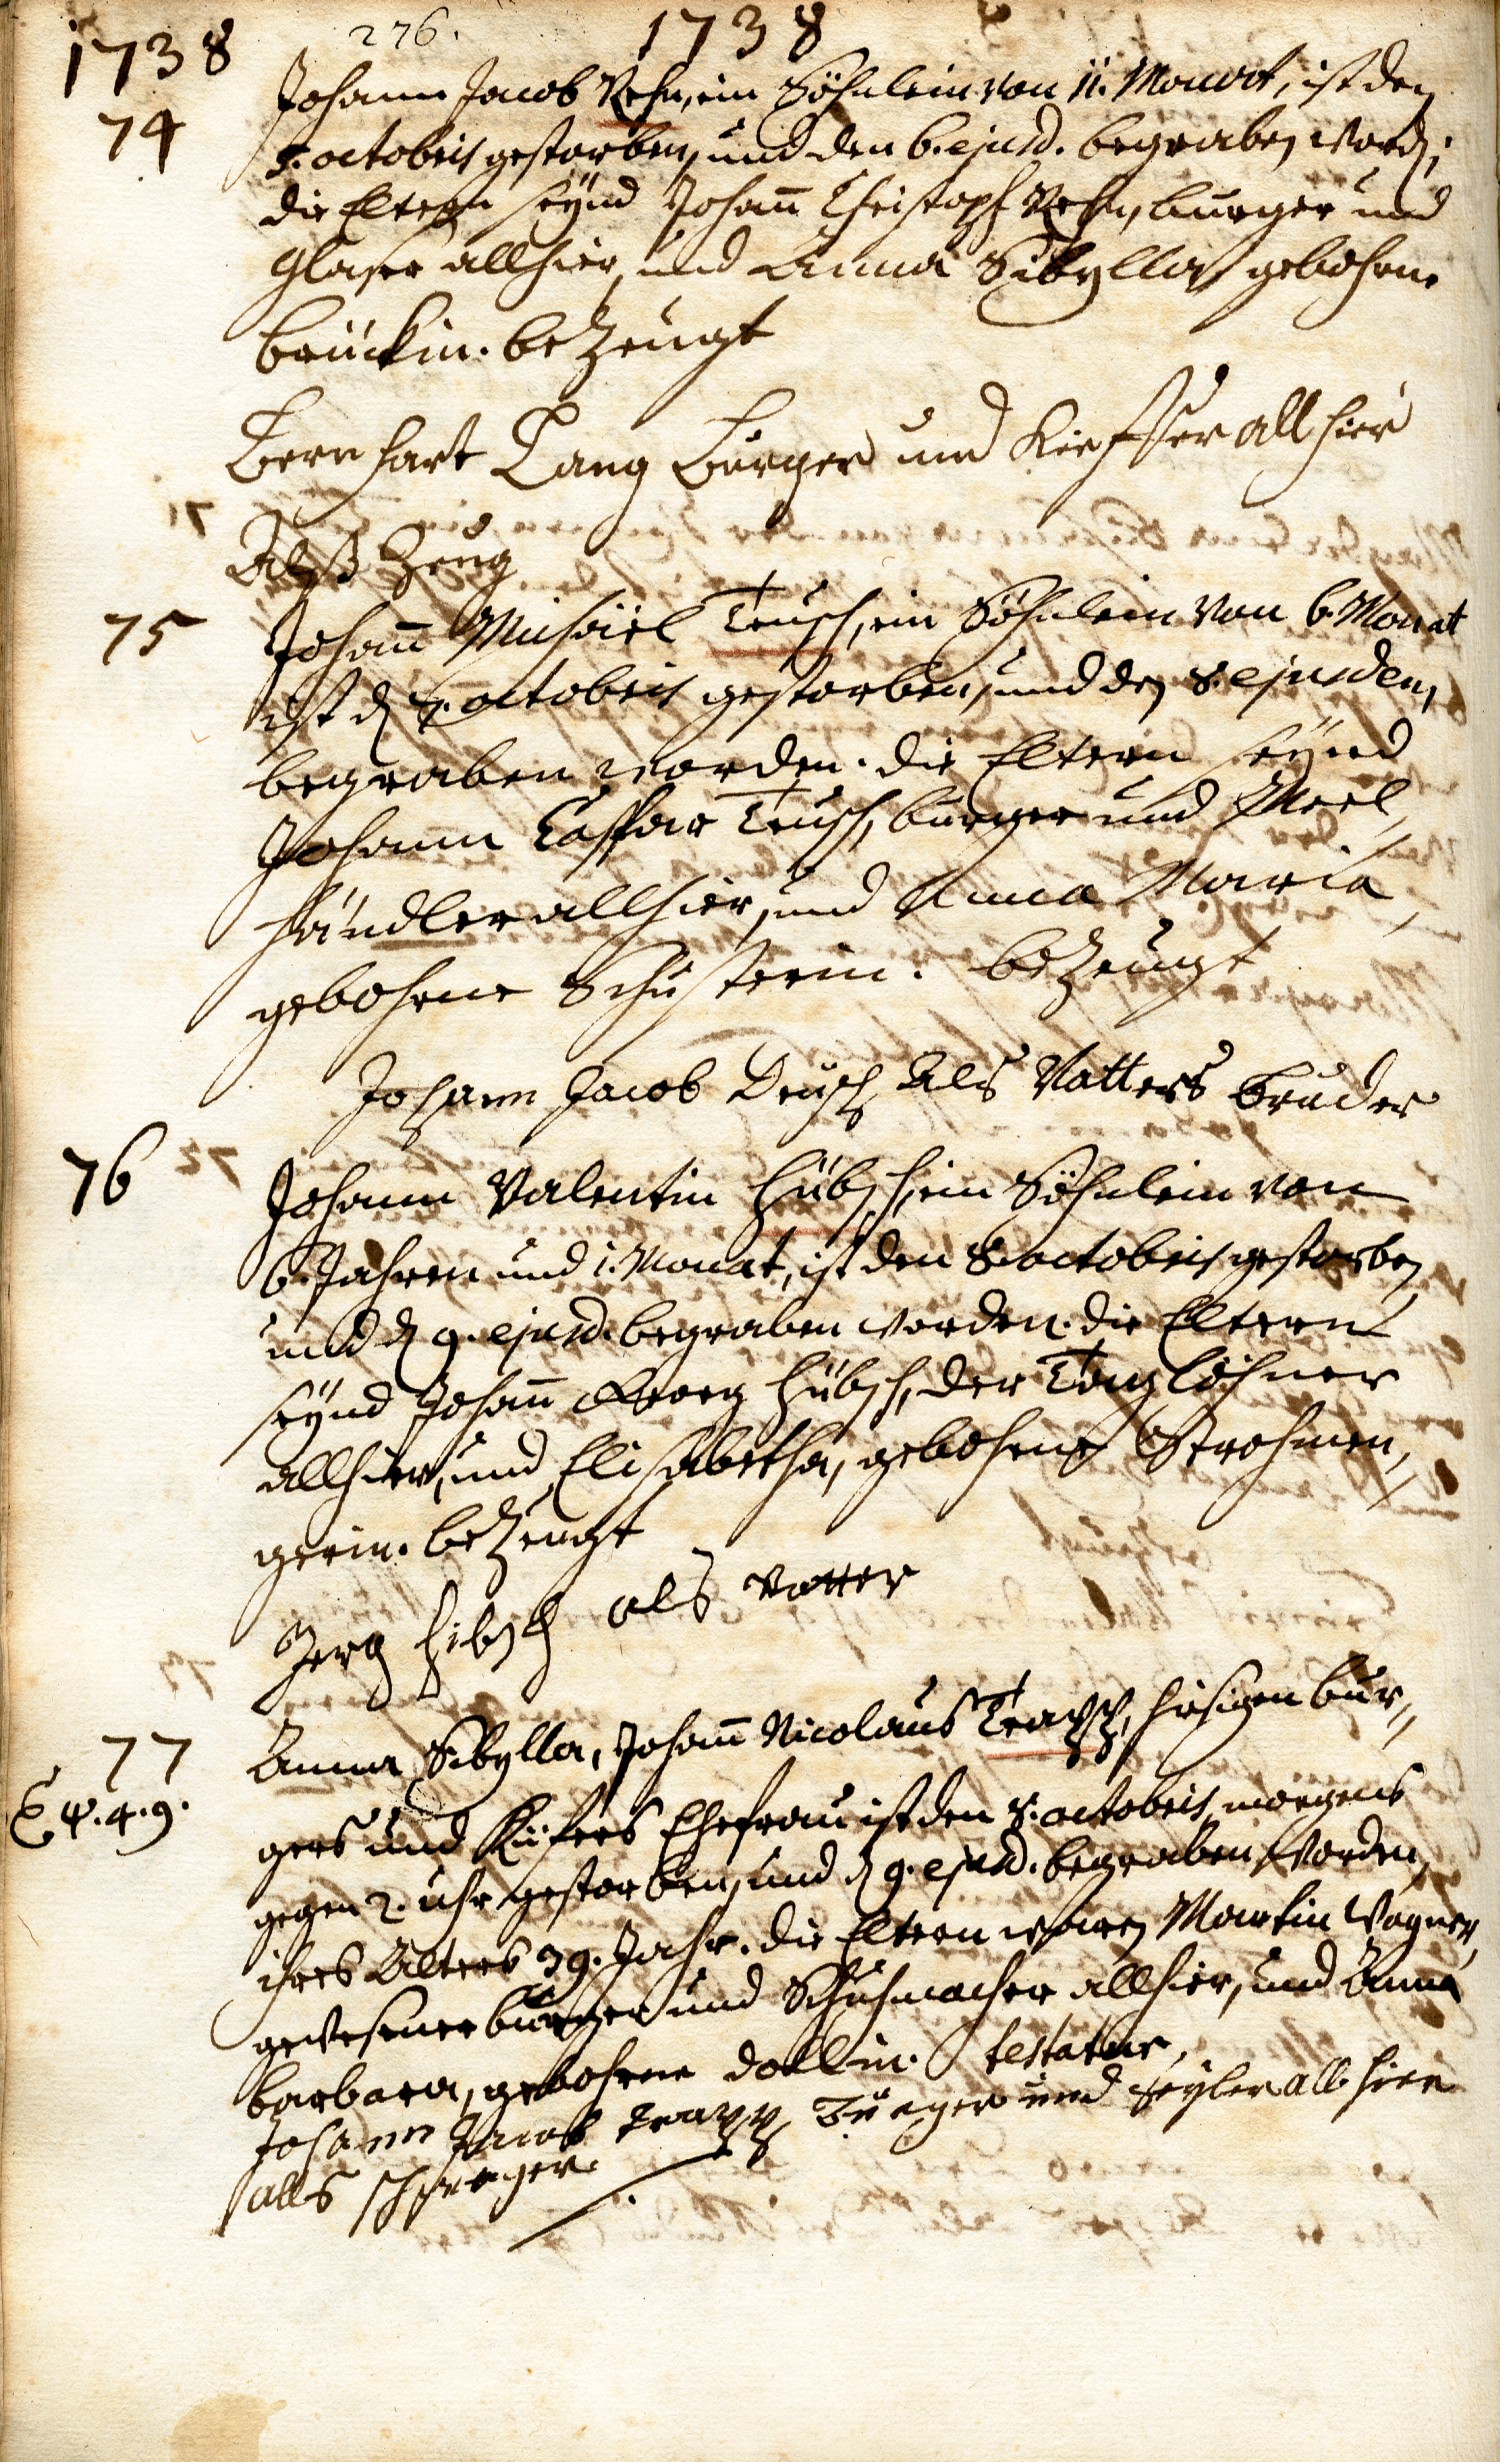 1738 276. 1738
74 Johann Jacob Rehn, ein Söhnlein von 11. Monat, ist den
5. octobris gestorben, und den 6. ejusd. begraben word;
die Eltern seynd Johann Christoph Rehn, burger und
Glaser allhier, und Anna Sibylla gebohrne
brückin. bezeugt
Bernhart Lang Burger und Kieffer all hier
Alß Zeug
75 Johann Michäel Teusch, ein Söhnlein von 6 Monat
ist d 7. octobris gestorben, und den 8. ejusdem
begraben worden. die Eltern seynd
Johann Casspar Teusch, burger und Meel
händler allhier, und Anna Maria,
gebohrne Schusterin. bezeugt
Johann Jacob Deusch Als Vatters bruder
76 Johann Valentin Hübsch, ein Söhnlein von
6. Jahren und 1. Monat, ist den 8. octobris gestorben
und d 9. ejusd. begraben worden. die Eltern
seynd Johann Georg Hübsch, der Taglöhner
allhier, und Elisabetha, gebohrne Strohmen,
gerin. bezeugt
Jerg Hibsch als Vatter
77 Anna Sibylla, Johann Nicolaus Trapp, hiesigen bur,
gers und Küfers Ehefrau ist den 8. octobris, morgens
4. 4. 9.
gegen 2. uhr gestorben, und d 9. ejusd. begraben worden,
ihres Alters 39. Jahr. die Eltern waren Martin Wagner,
gewesener burger und Schuhmacher allhier, und Anna
barbara, gebohrne dollin. testatur,
Johann Jacob Trapp Burger und seyler all hier
alls schwager